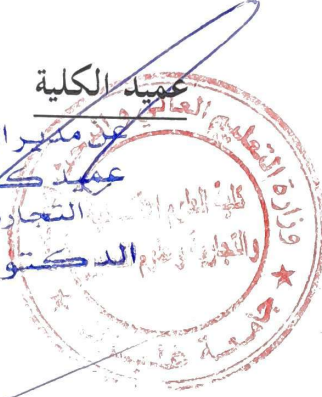 عميد الكلية
عن مدير ا
عميد ك
التجار
الدكتو
وزارة التعليم العالي
كلية العلوم
والتجارية وعلوم
جامعة